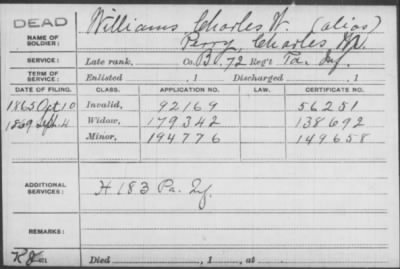 DEAD
NAME OF SOLDIER: Williams Charles W. (alias)
Perry, Charles W.
SERVICE: Late rank, Co. B, 72 Reg't Pa. Inf.
TERM OF SERVICE: Enlisted , 1 Discharged , 1
DATE OF FILING. CLASS. APPLICATION NO. LAW. CERTIFICATE NO.
1865 Oct 10 Invalid, 92169 56251
1869 Sept 4 Widow, 179342 138692
Minor, 194776 149658
ADDITIONAL SERVICES: H 183 Pa. Inf.
REMARKS:
Died , 1 , at